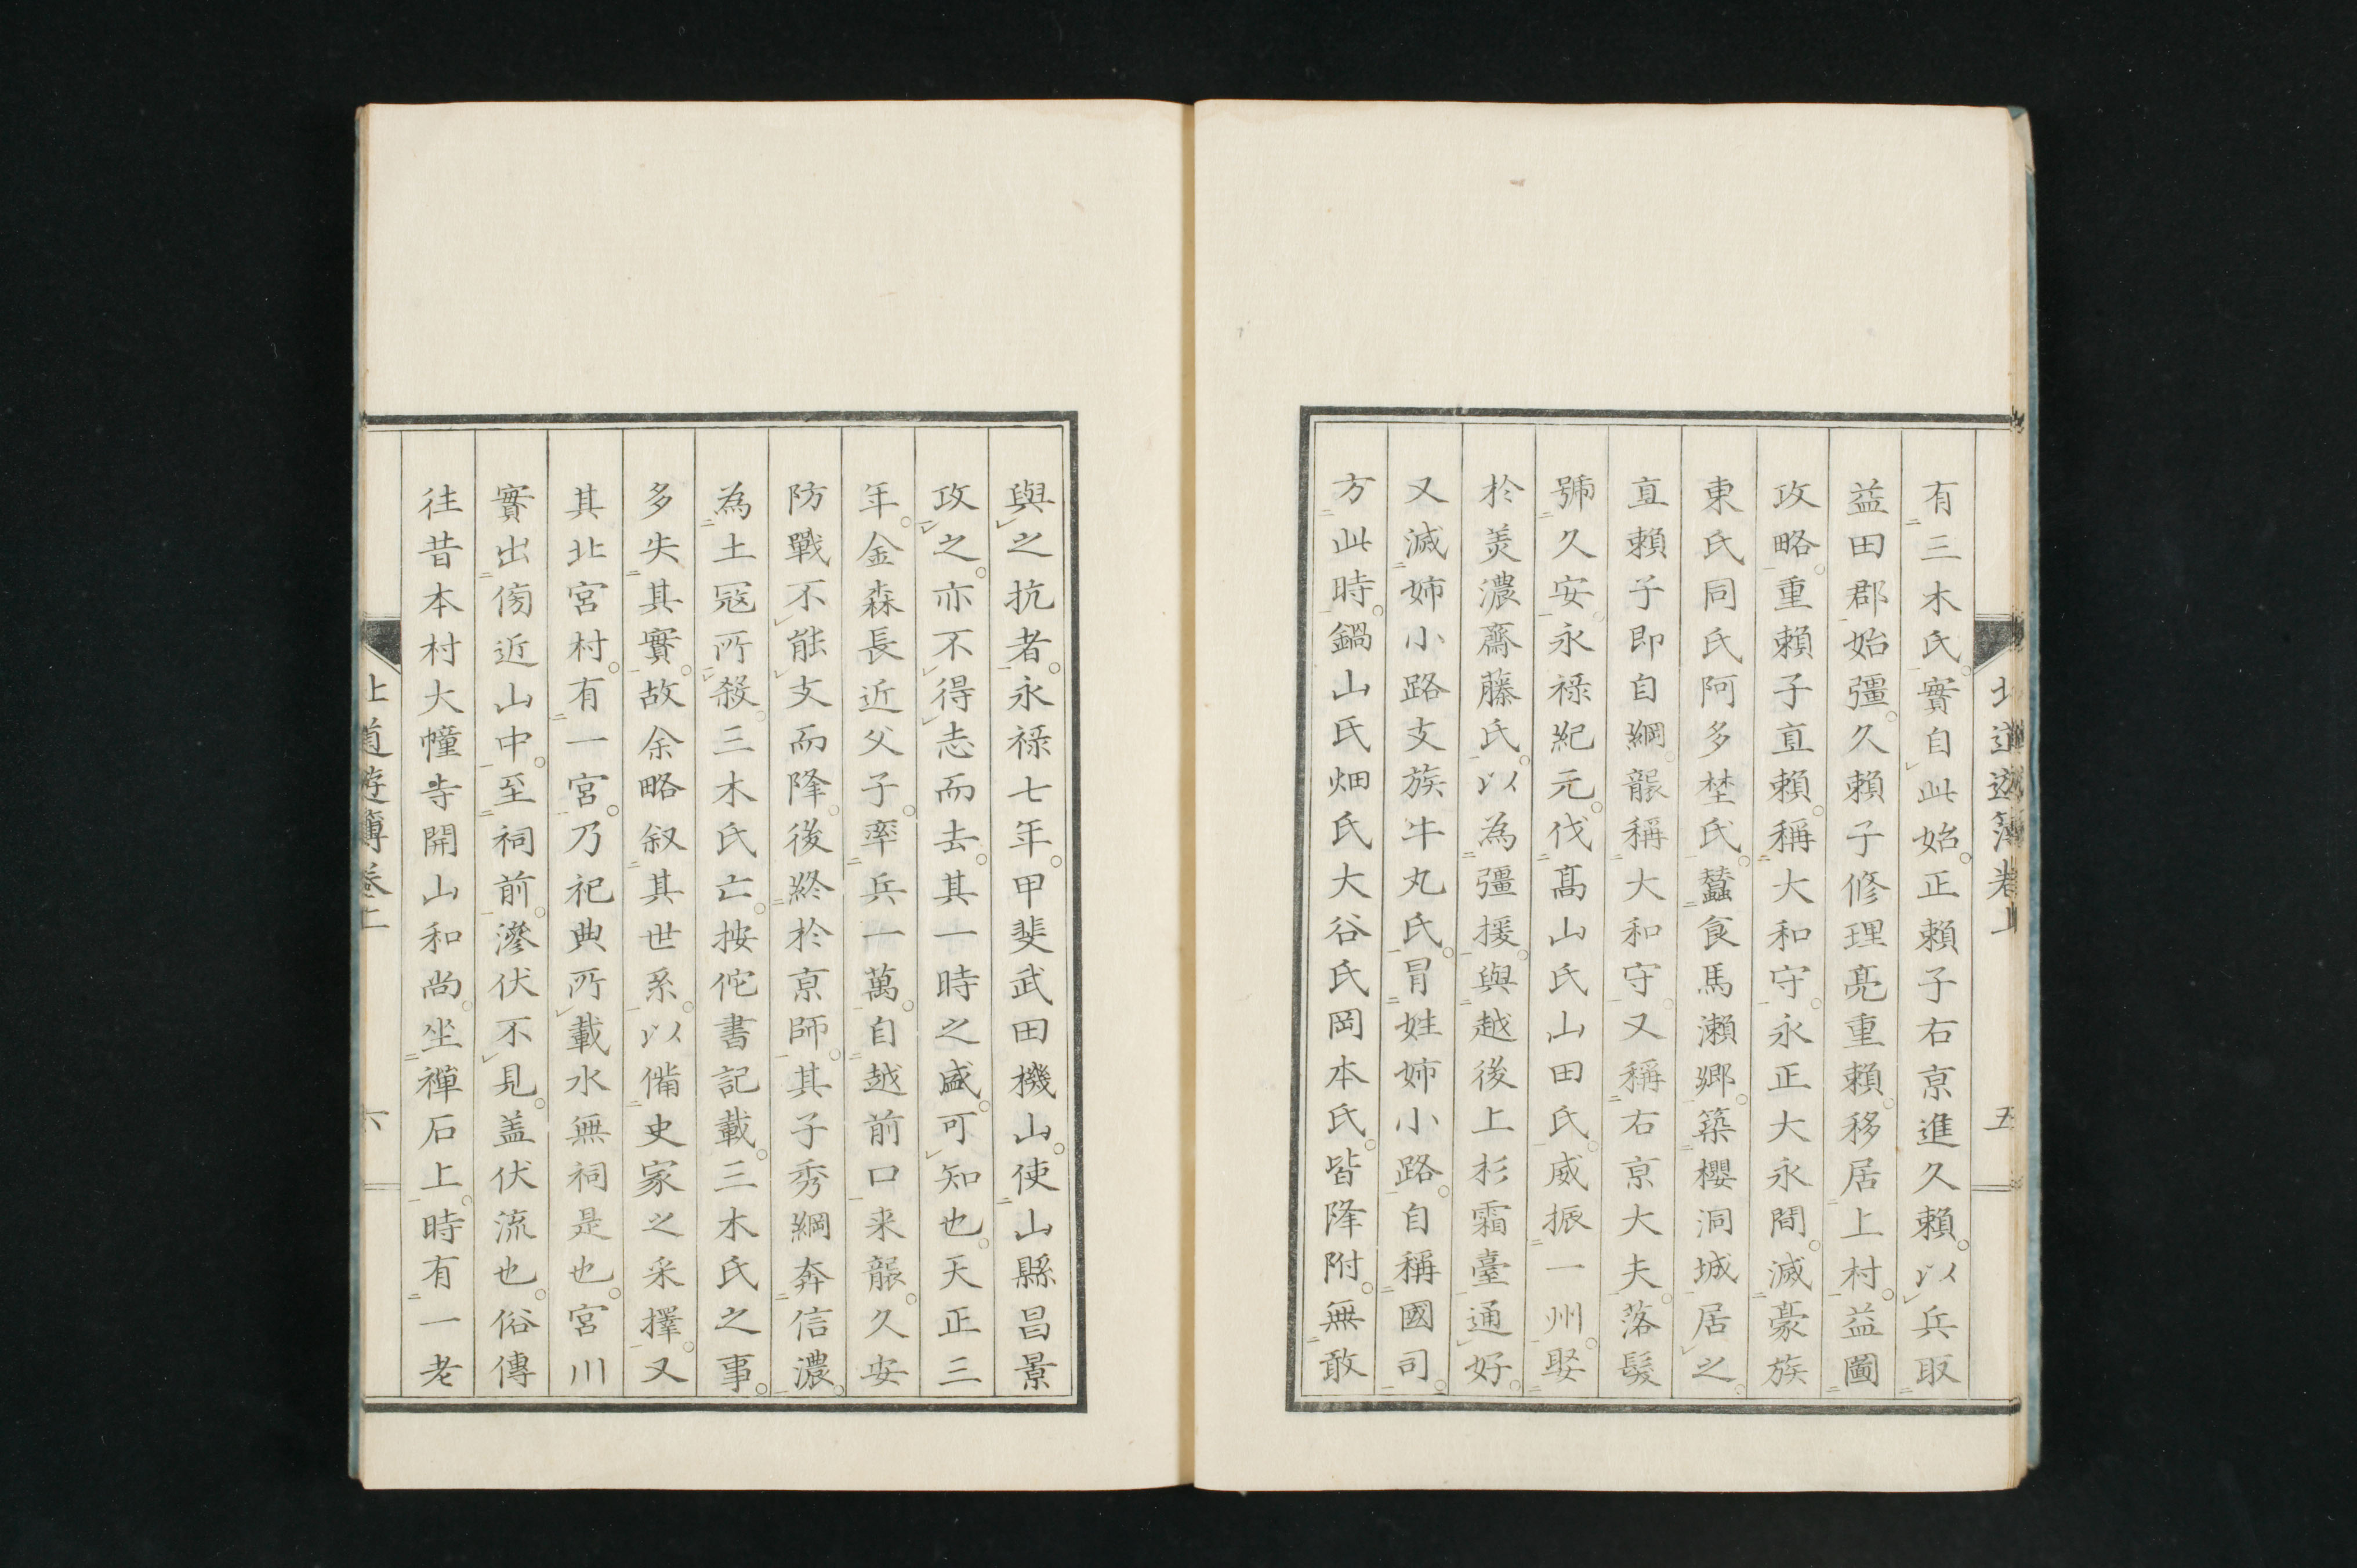 北道遊簿卷上　五
有三木氏。實自此始。正賴子右京進久賴。以兵取
益田郡始彊。久賴子修理亮重賴。移居上村。益圖
攻略。重賴子直賴。稱大和守。永正大永間。滅豪族
東氏同氏阿多埜氏。蠶食馬瀨郷。築櫻洞城居之。
直賴子即自綱。襲稱大和守。又稱右京大夫。落髮
號久安。永祿紀元。伐髙山氏山田氏。威振一州。娶
於美濃齋藤氏。以為彊援。與越後上杉霜臺通好。
又滅姉小路支族牛丸氏。冐姓姉小路。自稱國司。
方此時。鍋山氏畑氏大谷氏岡本氏。皆降附。無敢
與之抗者。永祿七年。甲斐武田機山。使山縣昌景
攻之。亦不得志而去。其一時之盛。可知也。天正三
年。金森長近父子。率兵一萬。自越前口来襲。久安
防戰不能支而降。後終於京師。其子秀綱奔信濃。
為土冦所殺。三木氏亡。按佗書記載。三木氏之事。
多失其實。故余略叙其世系。以備史家之采擇。又
其北宮村。有一宮。乃祀典所載水無祠是也。宮川
實出傍近山中。至祠前。滲伏不見。盖伏流也。俗傳
往昔本村大幢寺開山和尚。坐禪石上。時有一老
北道遊簿卷上　六